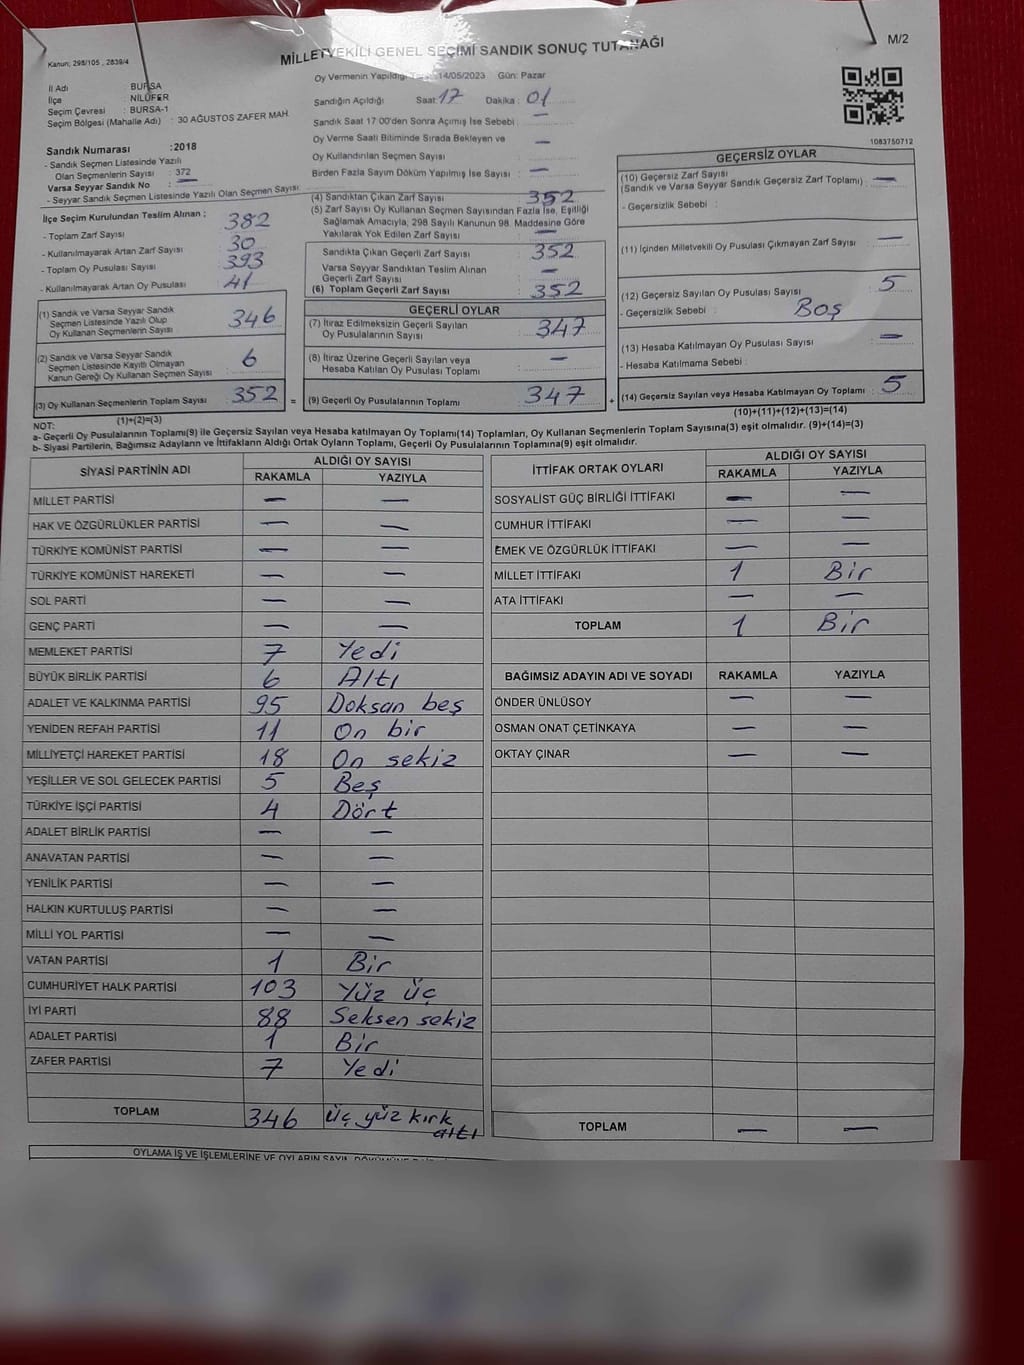 MİLLETVEKİLİ GENEL SEÇİMİ SANDIK SONUÇ TUTANAĞI
M/2
Kanun; 298/105 , 2839/4
İl Adı : BURSA
İlçe : NİLÜFER
Seçim Çevresi : BURSA-1
Seçim Bölgesi (Mahalle Adı) : 30 AĞUSTOS ZAFER MAH.
Sandık Numarası :2018
- Sandık Seçmen Listesinde Yazılı
Olan Seçmenlerin Sayısı : 372
Varsa Seyyar Sandık No : —
- Seyyar Sandık Seçmen Listesinde Yazılı Olan Seçmen Sayısı:
İlçe Seçim Kurulundan Teslim Alınan ;
- Toplam Zarf Sayısı : 382
- Kullanılmayarak Artan Zarf Sayısı : 30
- Toplam Oy Pusulası Sayısı : 393
- Kullanılmayarak Artan Oy Pusulası : 41
(1) Sandık ve Varsa Seyyar Sandık
Seçmen Listesinde Yazılı Olup
Oy Kullanan Seçmenlerin Sayısı : 346
(2) Sandık ve Varsa Seyyar Sandık
Seçmen Listesinde Kayıtlı Olmayan
Kanun Gereği Oy Kullanan Seçmen Sayısı : 6
(3) Oy Kullanan Seçmenlerin Toplam Sayısı : 352 =
(1)+(2)=(3)
Oy Vermenin Yapıldığı 14/05/2023 Gün: Pazar
Sandığın Açıldığı Saat: 17 Dakika : 01
Sandık Saat 17:00'den Sonra Açımış İse Sebebi : —
Oy Verme Saati Bitiminde Sırada Bekleyen ve
Oy Kullandırılan Seçmen Sayısı : —
Birden Fazla Sayım Döküm Yapılmış İse Sayısı : —
(4) Sandıktan Çıkan Zarf Sayısı : 352
(5) Zarf Sayısı Oy Kullanan Seçmen Sayısından Fazla İse, Eşitliği
Sağlamak Amacıyla, 298 Sayılı Kanunun 98. Maddesine Göre
Yakılarak Yok Edilen Zarf Sayısı : —
Sandıkta Çıkan Geçerli Zarf Sayısı : 352
Varsa Seyyar Sandıktan Teslim Alınan
Geçerli Zarf Sayısı : —
(6) Toplam Geçerli Zarf Sayısı : 352
GEÇERLİ OYLAR
(7) İtiraz Edilmeksizin Geçerli Sayılan
Oy Pusulasının Sayısı : 347
(8) İtiraz Üzerine Geçerli Sayılan veya
Hesaba Katılan Oy Pusulası Toplamı : —
(9) Geçerli Oy Pusulalarının Toplamı : 347 +
1083750712
GEÇERSİZ OYLAR
(10) Geçersiz Zarf Sayısı
(Sandık ve Varsa Seyyar Sandık Geçersiz Zarf Toplamı) : —
- Geçersizlik Sebebi :
(11) İçinden Milletvekili Oy Pusulası Çıkmayan Zarf Sayısı : —
(12) Geçersiz Sayılan Oy Pusulası Sayısı : 5
- Geçersizlik Sebebi : Boş
(13) Hesaba Katılmayan Oy Pusulası Sayısı : —
- Hesaba Katılmama Sebebi :
(14) Geçersiz Sayılan veya Hesaba Katılmayan Oy Toplamı : 5
(10)+(11)+(12)+(13)=(14)
NOT:
a- Geçerli Oy Pusulalarının Toplamı(9) ile Geçersiz Sayılan veya Hesaba katılmayan Oy Toplamı(14) Toplamları, Oy Kullanan Seçmenlerin Toplam Sayısına(3) eşit olmalıdır. (9)+(14)=(3)
b- Siyasi Partilerin, Bağımsız Adayların ve İttifakların Aldığı Ortak Oyların Toplamı, Geçerli Oy Pusulalarının Toplamına(9) eşit olmalıdır.
SİYASİ PARTİNİN ADI ALDIĞI OY SAYISI
RAKAMLA YAZIYLA
MİLLET PARTİSİ — —
HAK VE ÖZGÜRLÜKLER PARTİSİ — —
TÜRKİYE KOMÜNİST PARTİSİ — —
TÜRKİYE KOMÜNİST HAREKETİ — —
SOL PARTİ — —
GENÇ PARTİ — —
MEMLEKET PARTİSİ 7 Yedi
BÜYÜK BİRLİK PARTİSİ 6 Altı
ADALET VE KALKINMA PARTİSİ 95 Doksan beş
YENİDEN REFAH PARTİSİ 11 On bir
MİLLİYETÇİ HAREKET PARTİSİ 18 On sekiz
YEŞİLLER VE SOL GELECEK PARTİSİ 5 Beş
TÜRKİYE İŞÇİ PARTİSİ 4 Dört
ADALET BİRLİK PARTİSİ — —
ANAVATAN PARTİSİ — —
YENİLİK PARTİSİ — —
HALKIN KURTULUŞ PARTİSİ — —
MİLLİ YOL PARTİSİ — —
VATAN PARTİSİ 1 Bir
CUMHURİYET HALK PARTİSİ 103 Yüz üç
İYİ PARTİ 88 Seksen sekiz
ADALET PARTİSİ 1 Bir
ZAFER PARTİSİ 7 Yedi
TOPLAM 346 üç yüz kırk
altı
İTTİFAK ORTAK OYLARI ALDIĞI OY SAYISI
RAKAMLA YAZIYLA
SOSYALİST GÜÇ BİRLİĞİ İTTİFAKI — —
CUMHUR İTTİFAKI — —
EMEK VE ÖZGÜRLÜK İTTİFAKI — —
MİLLET İTTİFAKI 1 Bir
ATA İTTİFAKI — —
TOPLAM 1 Bir
BAĞIMSIZ ADAYIN ADI VE SOYADI RAKAMLA YAZIYLA
ÖNDER ÜNLÜSOY — —
OSMAN ONAT ÇETİNKAYA — —
OKTAY ÇINAR — —
TOPLAM — —
OYLAMA İŞ VE İŞLEMLERİNE VE OYLARIN SAYIM